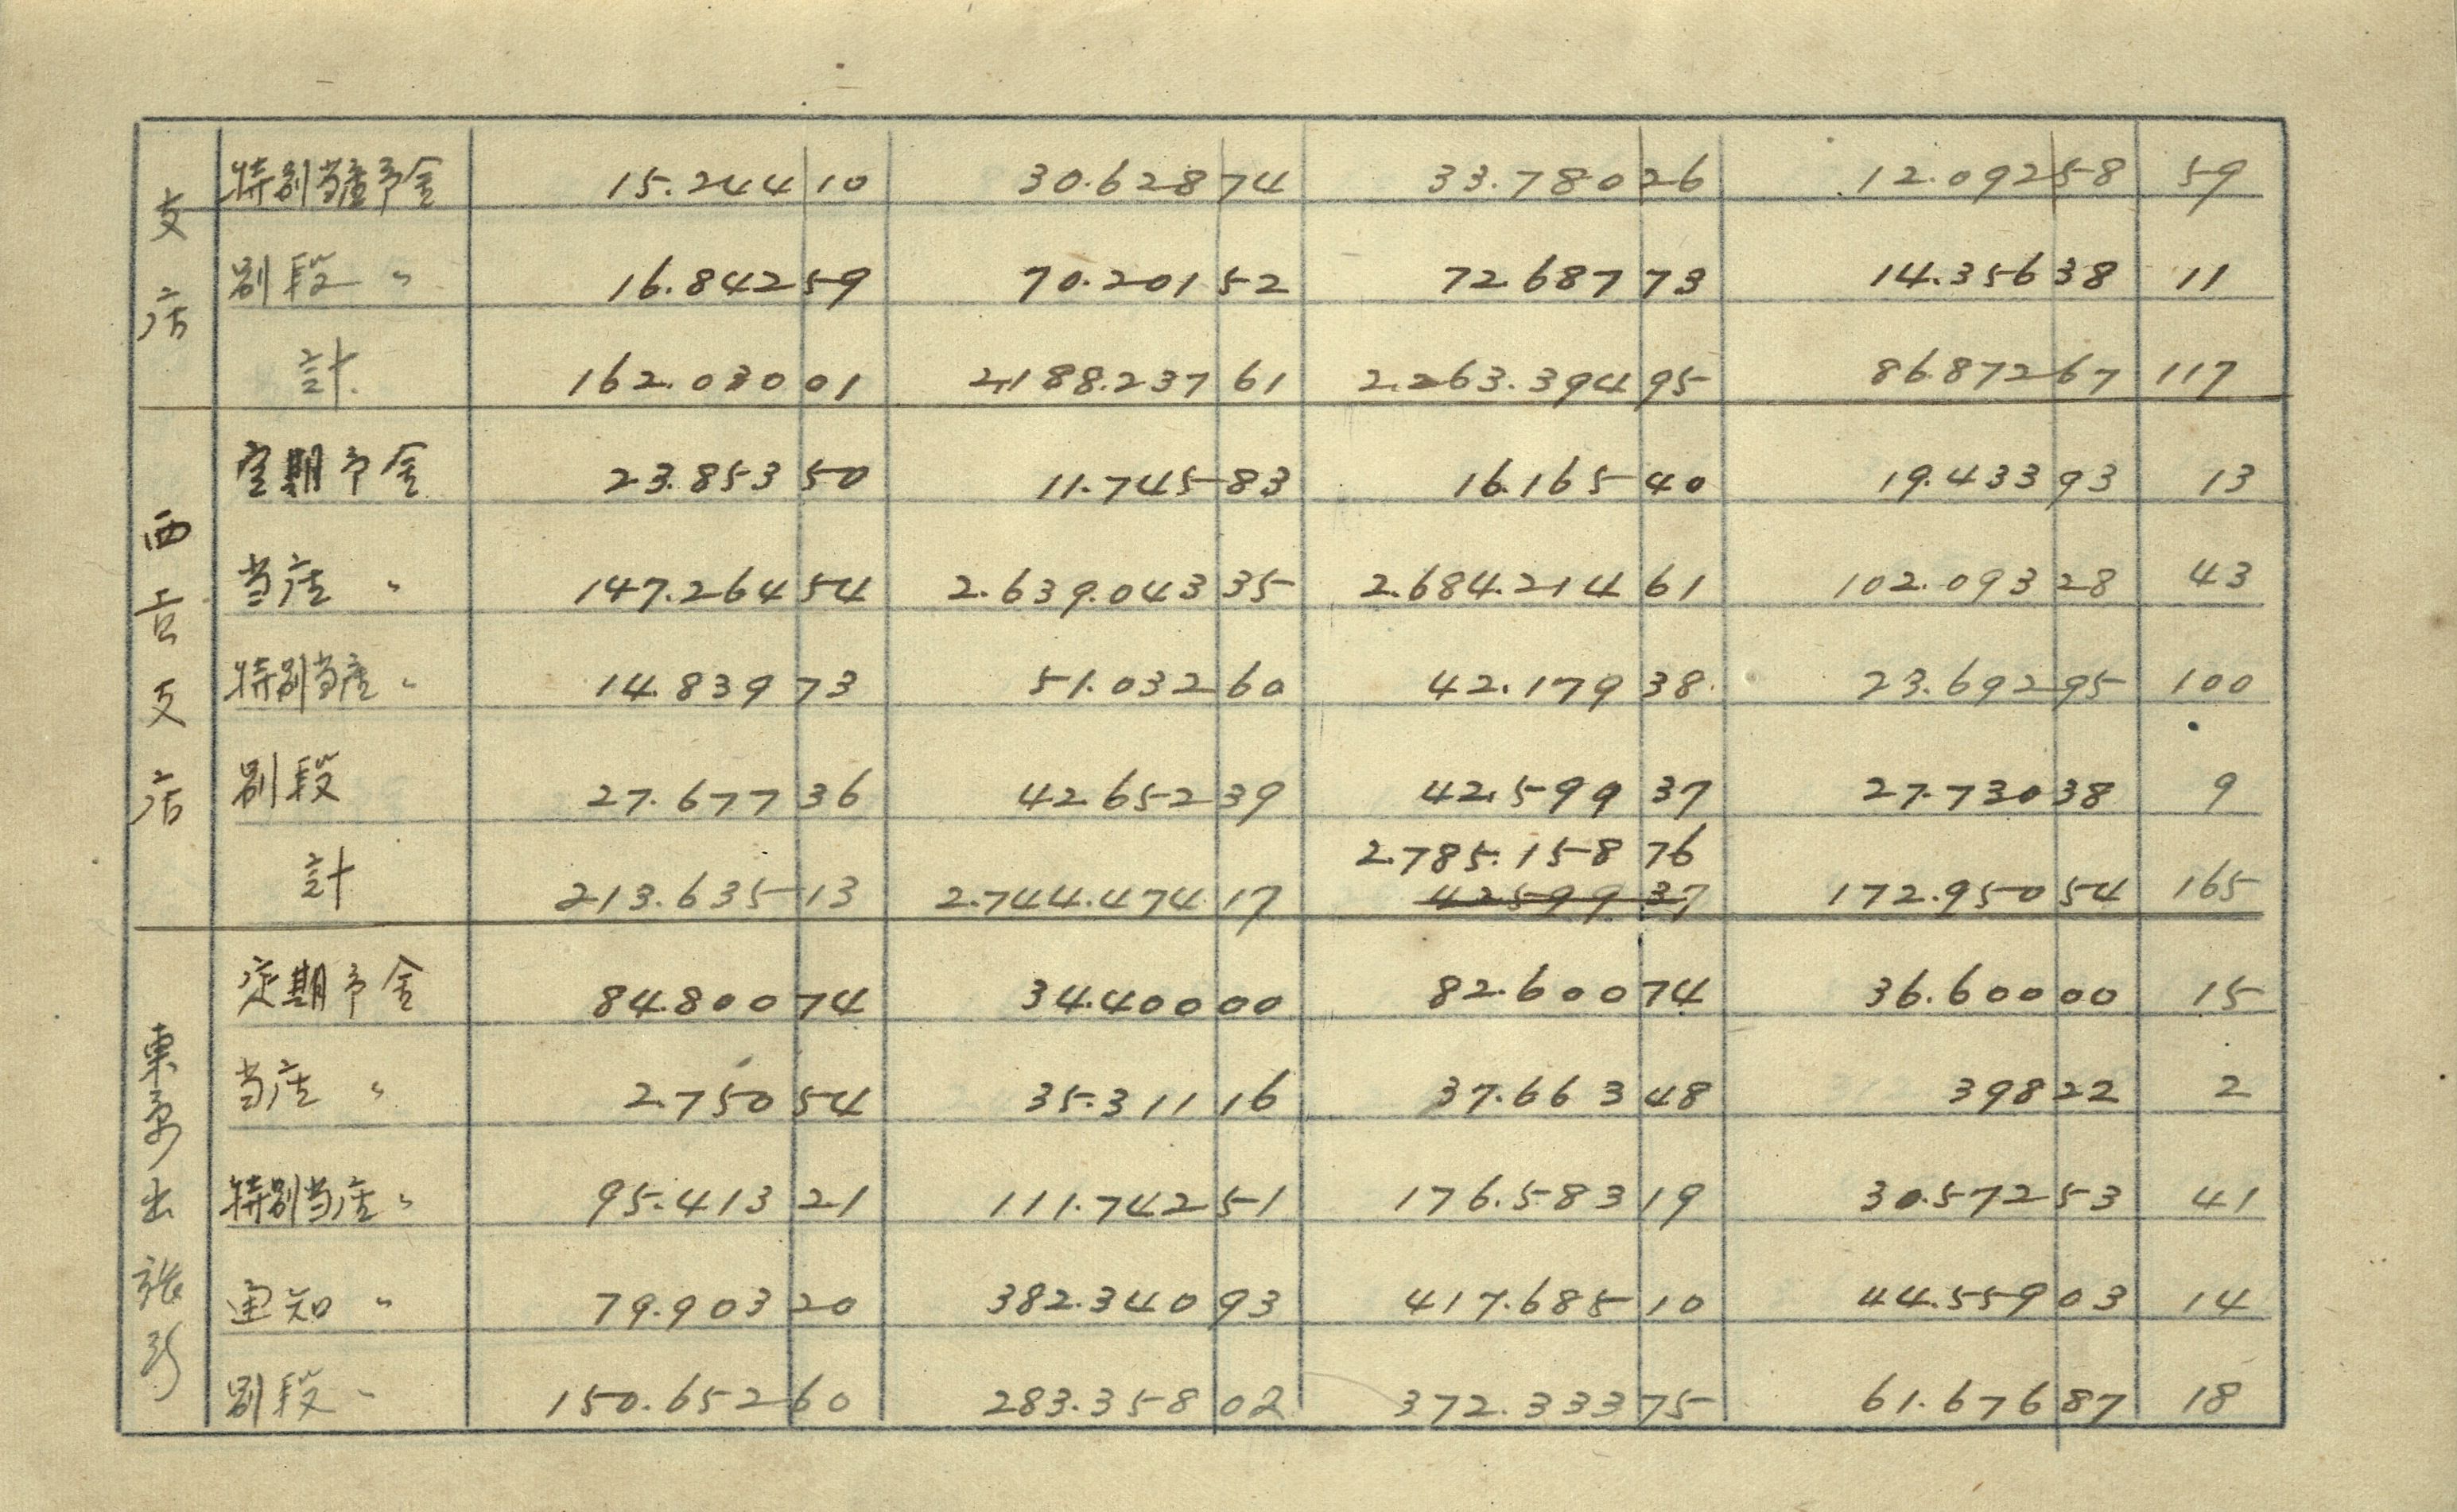 支店
特別当座予金 15.244 10 30.628 74 33.780 26 12.092 58 59
別段 〃 16.842 59 70.201 52 72.687 73 14.356 38 11
計 162.030 01 2,188.237 61 2.263.394 95 86.872 67 117
支店
定期予金 23.853 50 11.745 83 16.165 40 19.433 93 13
当座 〃 147.264 54 2.639.043 35 2.684.214 61 102.093 28 43
特別当座 〃 14.839 73 51.032 60 42.179 38 23.692 95 100
別段 27.677 36 42.652 39 42.599 37 27.730 38 9
2.785.158 76
計 213.635 13 2.744.474 17 42599 37 172.950 54 165
東京出張所
定期予金 84.800 74 34.400 00 82.600 74 36.600 00 15
当座 〃 2.750 54 35.311 16 37.663 48 398 22 2
特別当座 〃 95.413 21 111.742 51 176.583 19 30.572 53 41
通知 〃 79.903 20 382.340 93 417.685 10 44.559 03 14
別段 〃 150.652 60 283.358 02 372.333 75 61.676 87 18